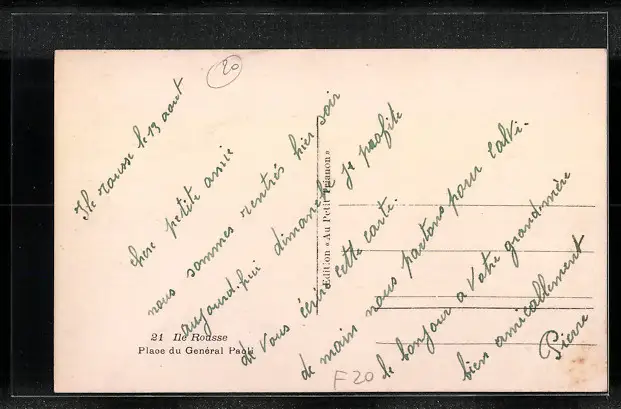 20
Ile rousse le 13 aout
chere petite amie
nous sommes rentrés hier soir
aujourd-hui dimanche je profite
de vous écrire cette carte.
de main nous partons pour Calvi.
le bonjour a Votre grand-mère
bien amicallement
Pierre
Édition « Au Petit Trianon »
21 Ile Rousse
Place du Genéral Paoli
F20